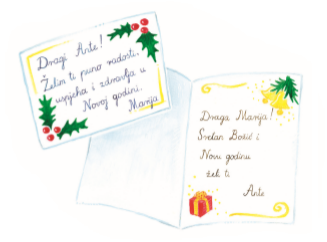 Dragi Ante!
Želim ti puno radosti,
uspjeha i zdravlja u
Novoj godini.
Marija
Draga Marija!
Sretan Božić i
Novu godinu
želi ti
Ante